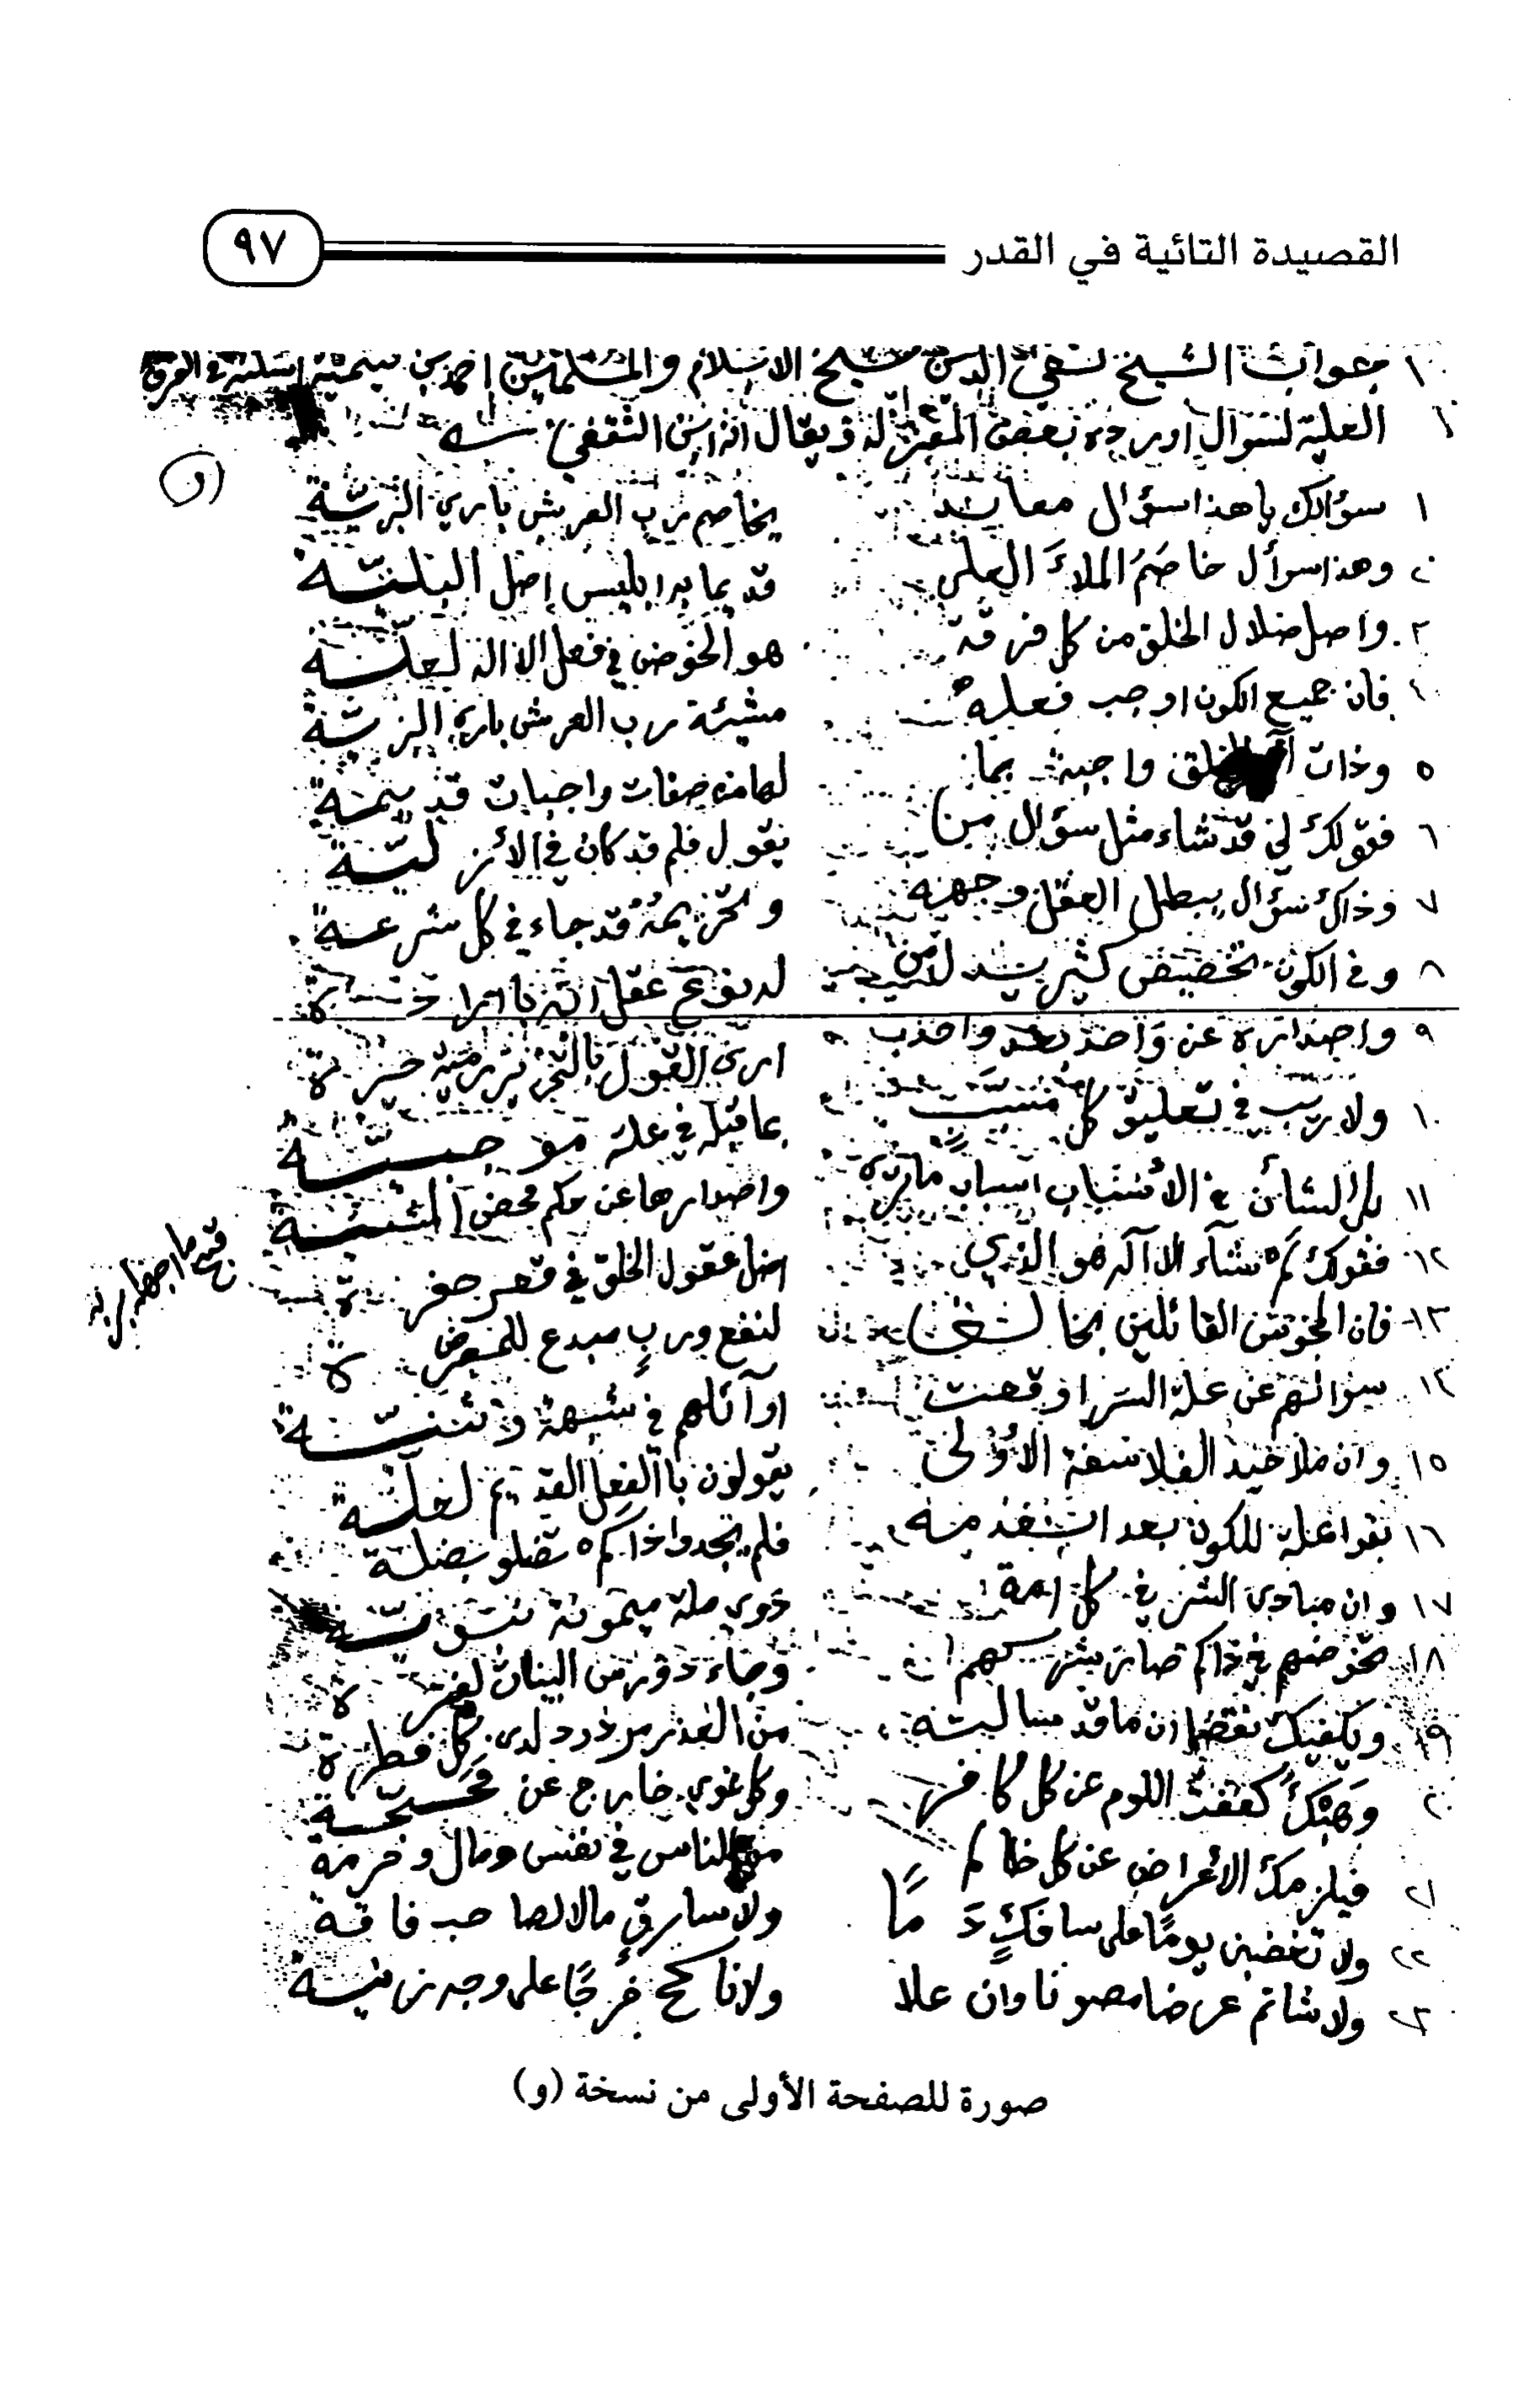 القصيدة التائية في القدر ٩٧
جواب الشيخ تقي الدين شيخ الاسلام والمسلمين احمد بن تيمية
العلية لسؤال اورده بعض المعتزله ويقال انه ابن الثقفي
(و)
١ سؤالك يا هذا سؤال معاند يخاصم رب العرش باري البريّة
٢ وهذا سوأل خاصَمَ الملاءَ العلى قديما به ابليس اصل البليّة
٣ واصل ضلال الخلق من كل فرقة هو الخوض في فعل الاالله لعلّة
٤ فان جميع الكون اوجب فعله مشيئة رب العرش باري البريّة
٥ وذات الخلق واجبة بما لها من صفات واجبات قديمة
٦ فقولك لم قد شاء مثل سؤال من يقول فلم قد كان في الأزليّة
٧ وذاك سؤال يبطل العقل وجهه وتحريمُهُ قد جاء في كل شرعة
٨ وفي الكون تخصيص كثير يدل من له نوع عقل انه بارادة
٩ واصداره عن واحد بعد واحد ارى القول بالتجويز رمية حيرة
١٠ ولا ريب في تعليق كل مسبب بما قبله في علة موجبيّة
١١ بل الشأن في الأسباب اسباب ما ترى واصدارها عن حكم محض المشيئة
١٢ فقولك لم شآء الاآله هو الذي اضل عقول الخلق في قعر حفرة
١٣ فان المجوس القائلين بخالق لنفع ورب مبدع للمضرة
١٤ سؤالهم عن علة السر اوقعت اوآئلهم في شبهة وثنيّة
١٥ وان ملاحيد الفلاسفة الأولى يقولون باالفعل القديم لعلّة
١٦ بغوا علة للكون بعد انعدمه فلم يجدوا ذاكم فضلو بضلة
١٧ وان مبادي الشر في كل امة ذوي ملة ميمونة نبويّة
١٨ بخوضهم في ذاكم صار شركهم وجاء دروس البينات لفترة
١٩ ويكفيك نقضا ان ما قد سالته من العذر مردود لدى كل فطرة
٢٠ وَهبْكَ كففت اللوم عن كل كافر وكل غوي خارج عن محجّة
٢١ فيلزمك الأعراض عن كل ظالم من الناس في نفس ومال وحرمة
٢٢ ولا تغضبن يومًا على سافكٍ دَمًا ولا سارقٍ مالا لصاحب فاقة
٢٣ ولا شاتم عرضا مصونا وان علا ولا ناكح فرجًا على وجه زنية
صورة للصفحة الأولى من نسخة (و)